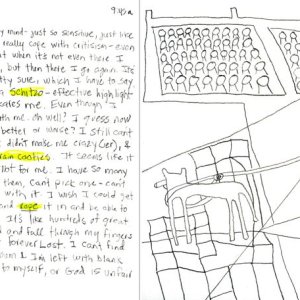 9:45a
my mind - just so sensitive, just like
really cope with critisism - even
out when it's not even there I
, but then there I go again. It's
etty sure, which I hate to say
a Schitzo - effective high light
kates me. Even though I
ith me. oh well? I guess now
better or worse? I still can't
didn't make me crazy(ier), &
rain cooties. It seems life it
Not for me. I have so many
them, Can't pick one - can't
with it. I wish I could get
and rope it in and be able to
It's like hundreds of great
d and fall through my fingers
forever Lost. I can't find
I'm left with blank
to myself, or God is unfair